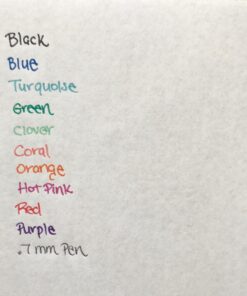 Black
Blue
Turquoise
Green
Clover
Coral
Orange
Hot Pink
Red
Purple
.7 mm Pen